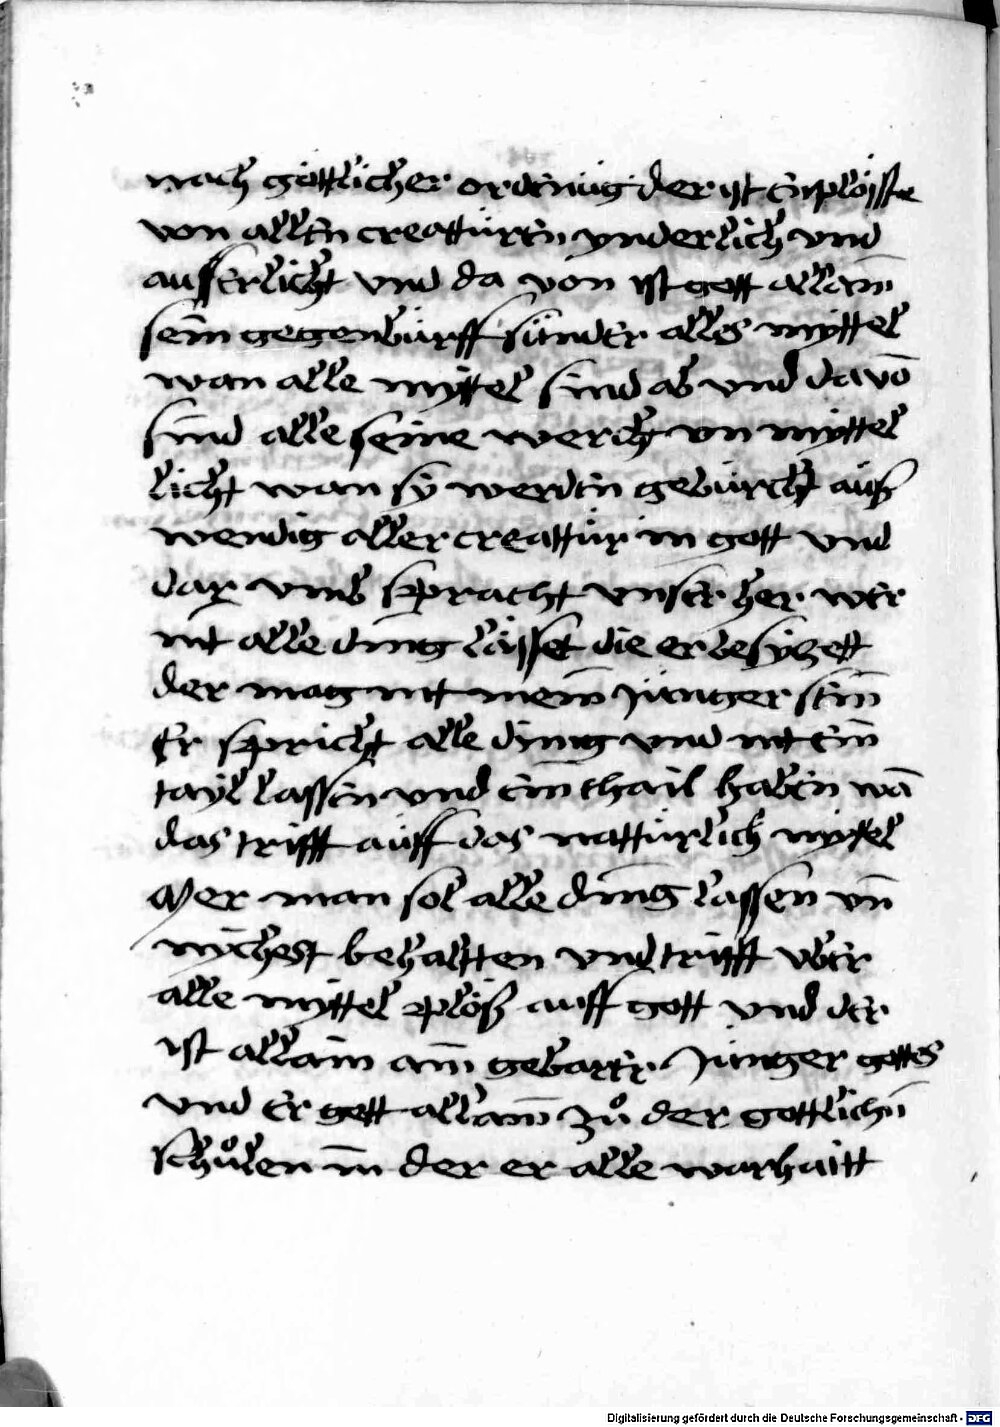 nach göttlicher ordenüg der ist emplösste
von allen creattüren ynderlich vnd
ausserlicht vnd da von ist gott allain
sein gegenbürff sünder alles myttel
wan alle myttel sind ab vnd da vō
sind alle seine werch vn myttel
licht wan sy werden gebürcht auß
wendig aller creattür in gott vnd
dar vmb spracht vnser her wer
nit alle ding lässet die er besytzett
der mag nit mein jünger sein
Er spricht alle ding vnd nit ein
tayl lassen vnd ein thail haben wā
das trifft auff das nattürlich myttel
Mer man sol alle ding lassen vn̄
nychest behaltten vnd trifft vber
alle myttel plöß auff gott vnd der
ist allain ain gebarer jünger gottes
vnd er gett allain zů der gottlichn̄
schůlen in der er alle warhaitt
Digitalisierung gefördert durch die Deutsche Forschungsgemeinschaft - DFG